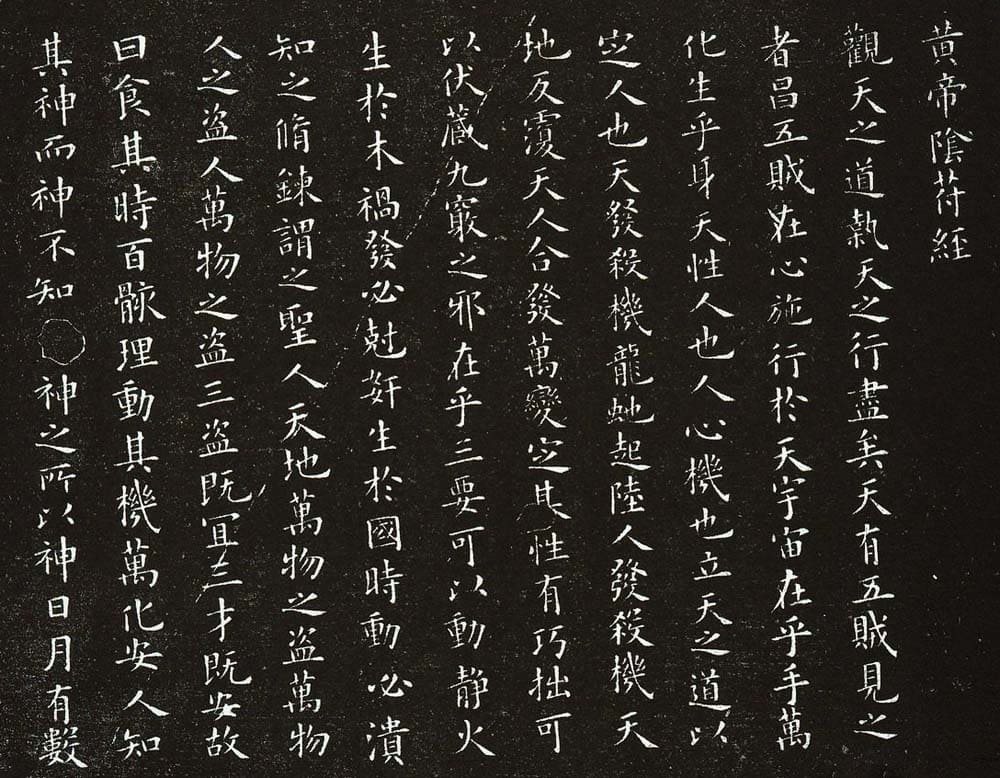 黃帝陰苻經
觀天之道執天之行盡矣天有五賊見之
者昌五賊在心施行於天宇宙在乎手萬
化生乎身天性人也人心機也立天之道以
定人也天發殺機龍虵起陸人發殺機天
地反覆天人合發萬變定其性有巧拙可
以伏藏九竅之邪在乎三要可以動静火
生於木禍發必尅姧生於國時動必潰
知之脩鍊謂之聖人天地萬物之盜萬物
人之盜人萬物之盜三盜既冝三才既安故
曰食其時百骸理動其機萬化安人知
其神而神不知神之所以神日月有數